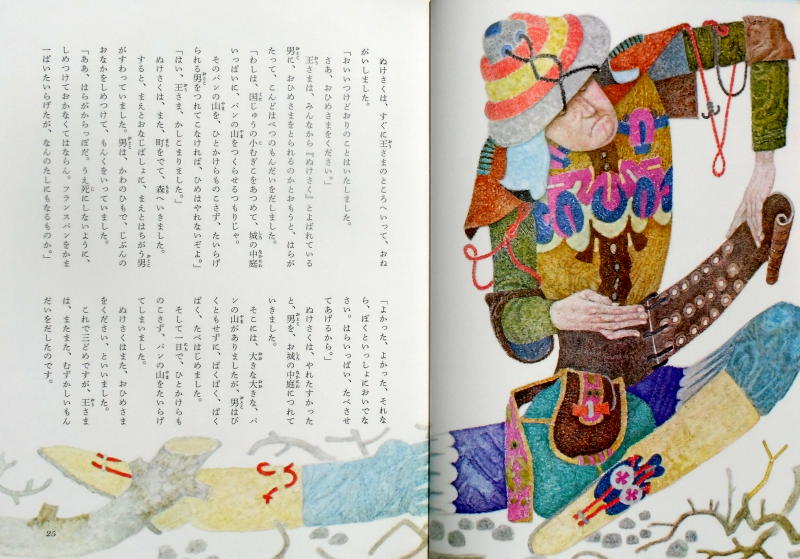 ぬけさくは、すぐに王さまのところへいって、おね
がいしました。
「おいいつけどおりのことはいたしました。
さあ、おひめさまをください。」
王さまは、みんなから『ぬけさく』とよばれている
男に、おひめさまをとられるのかとおもうと、はらが
たって、こんどはべつのもんだいをだしました。
「わしは、国じゅうの小むぎこをあつめて、城の中庭
いっぱいに、パンの山をつくらせるつもりじゃ。
そのパンの山を、ひとかけらものこさず、たいらげ
られる男をつれてこなければ、ひめはやれないぞよ。」
「はい、王さま、かしこまりました。」
ぬけさくは、また、町をでて、森へいきました。
すると、まえとおなじばしょに、まえとはちがう男
がすわっていました。男は、かわのひもで、じぶんの
おなかをしめつけて、もんくをいっていました。
「ああ、はらがからっぽだ。うえ死にしないように、
しめつけておかなくてはならん。フランスパンをかま
一ぱいたいらげたが、なんのたしにもなるものか。」
「よかった、よかった、それな
ら、ぼくといっしょにおいでな
さい。はらいっぱい、たべさせ
てあげるから。」
ぬけさくは、やれたすかった
と、男を、お城の中庭につれて
いきました。
そこには、大きな大きな、パ
ンの山がありましたが、男はび
くともせずに、ぱくぱく、ぱく
ぱく、たべはじめました。
そして一日で、ひとかけらも
のこさず、パンの山をたいらげ
てしまいました。
ぬけさくはまた、おひめさま
をください、といいました。
これで三どめですが、王さま
は、またまた、むずかしいもん
だいをだしたのです。
25